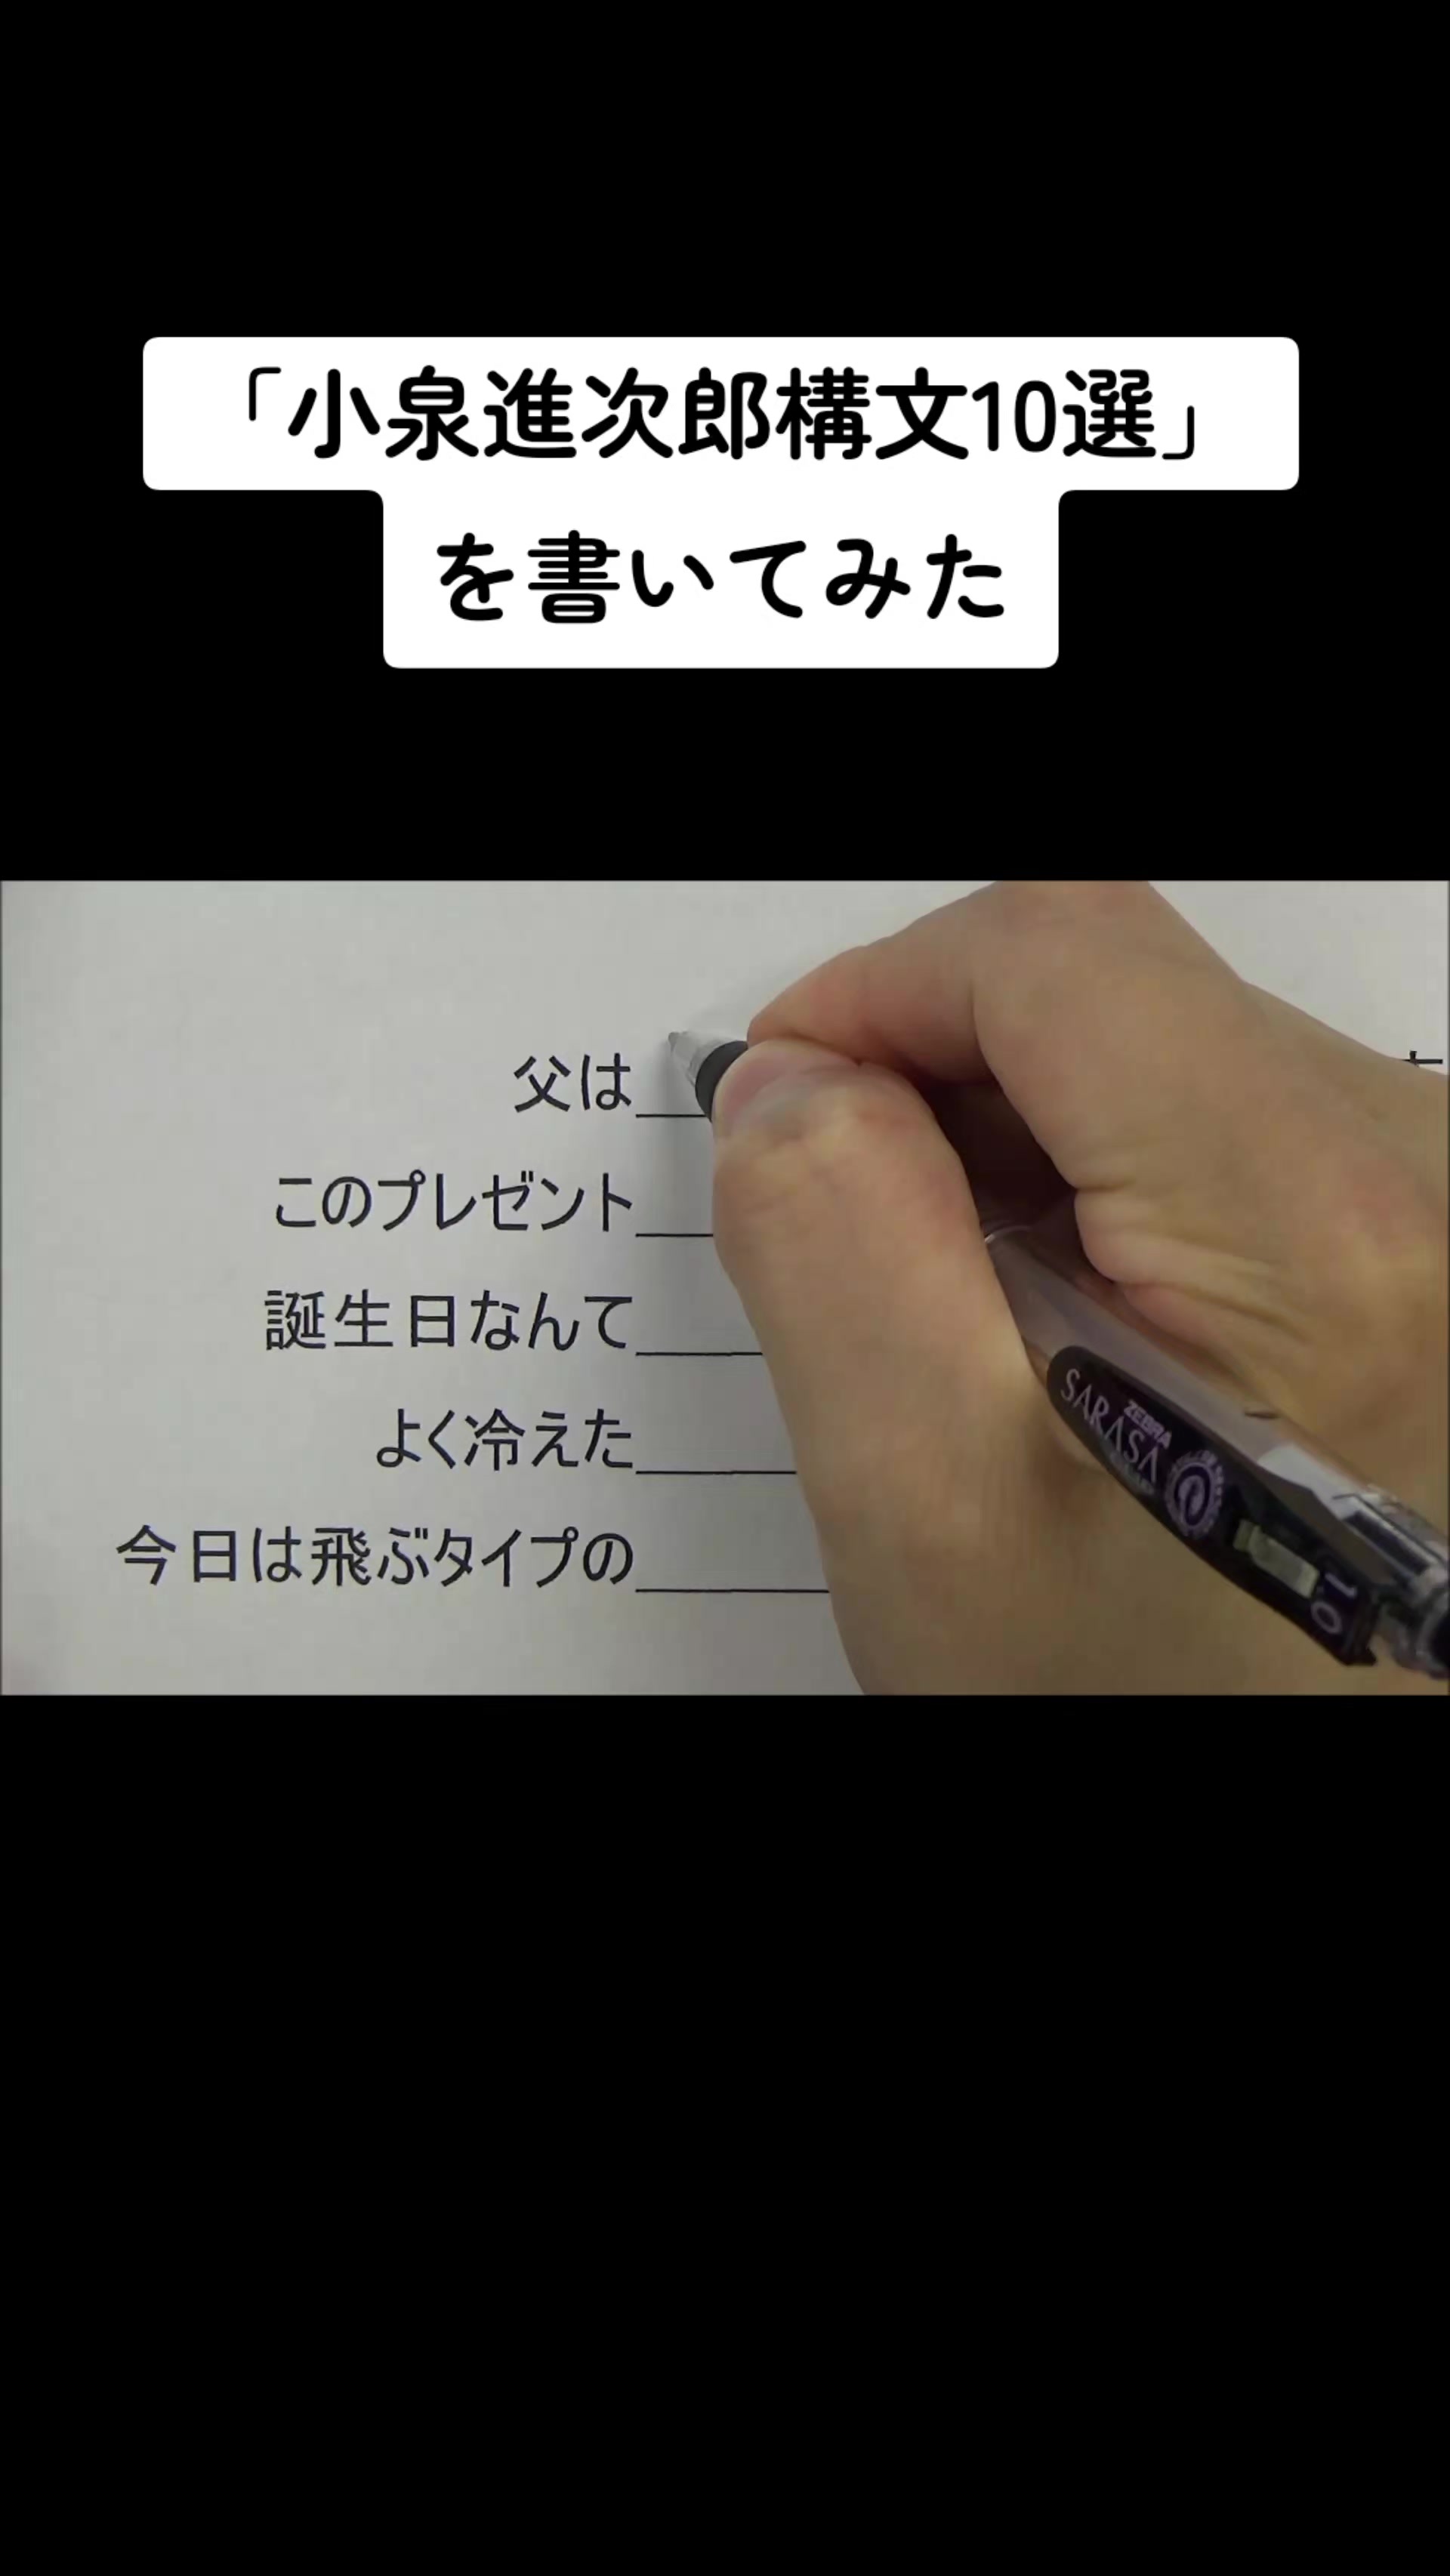 「小泉進次郎構文10選」
を書いてみた
父は
このプレゼント
誕生日なんて
よく冷えた
今日は飛ぶタイプの
ZEBRA
SARASA
1.0